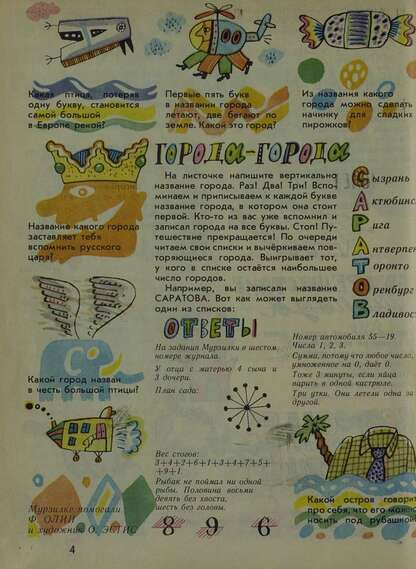 Какая птица, потеряв
одну букву, становится
самой большой
в Европе рекой?
Первые пять букв
в названии города
летают, две бегают по
земле. Какой это город?
Из названия какого
города можно сделать
начинку для сладких
пирожков?
Название какого города
заставляет тебя
вспомнить русского
царя?
Какой город назван
в честь большой птицы?
ГОРОДА-ГОРОДА
На листочке напишите вертикально
название города. Раз! Два! Три! Вспо-
минаем и приписываем к каждой букве
название города, в котором она стоит
первой. Кто-то из вас уже вспомнил и
записал города на все буквы. Стоп! Пу-
тешествие прекращается! По очереди
читаем свои списки и вычёркиваем пов-
торяющиеся города. Выигрывает тот,
у кого в списке остаётся наибольшее
число городов.
Например, вы записали название
САРАТОВА. Вот как может выглядеть
один из списков:
Сызрань
Актюбинс
Рига
Антверпен
Торонто
Оренбург
Владивос
ОТВЕТЫ
На задания Мурзилки в шестом
номере журнала.
У отца с матерью 4 сына и
3 дочери.
План сада:
Вес стогов:
3+4+2+6+1+3+4+7+5+
+9+1.
Рыбак не поймал ни одной
рыбы. Половина восьми
девять без хвоста,
шесть без головы.
8 9 6
Номер автомобиля 55—19.
Числа 1, 2, 3.
Сумма, потому что любое число,
умноженное на 0, даёт 0.
Тоже 3 минуты, если яйца
варить в одной кастрюле.
Три утки. Они летели одна за
другой.
Какой остров говори
про себя, что его можно
носить под рубашкой
Мурзилке помогали
Ф. ОЛИН
и художник О. ЭСТИС
4